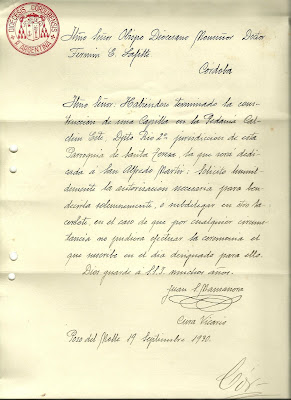 DIOCESIS CORDUBENSIS
ARGENTINA
Iltmo Señor Obispo Diocesano Monseñor Doctor
Fermin E. Lafitte
Cordoba
Iltmo Señor: Habiendose terminado la cons-
trucción de una Capilla en la Pedania Cal-
chin Este. Dpto Rio 2º jurisdiccion de esta
Parroquia de Santa Rosa, la que será dedi-
cada á San Alfredo Martir: Solicito humil-
demente la autorizacion necesaria para ben-
decirla solemnemente, o subdelegar en otro Sa-
cerdote, en el caso de que por cualquier circuns-
tancia no pudiera efectuar la ceremonia el
que suscribe en el dia designado para ello.
Dios guarde á S.S.I. muchos años.
Juan
Cura Vicario
Pozo del Molle 19 Septiembre 1930.